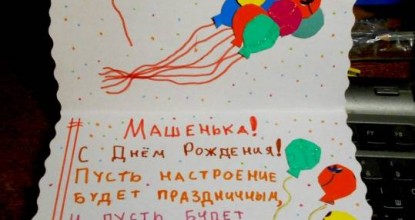 Машенька!
С Днём Рождения!
Пусть настроение
будет праздничным,
и пусть будет